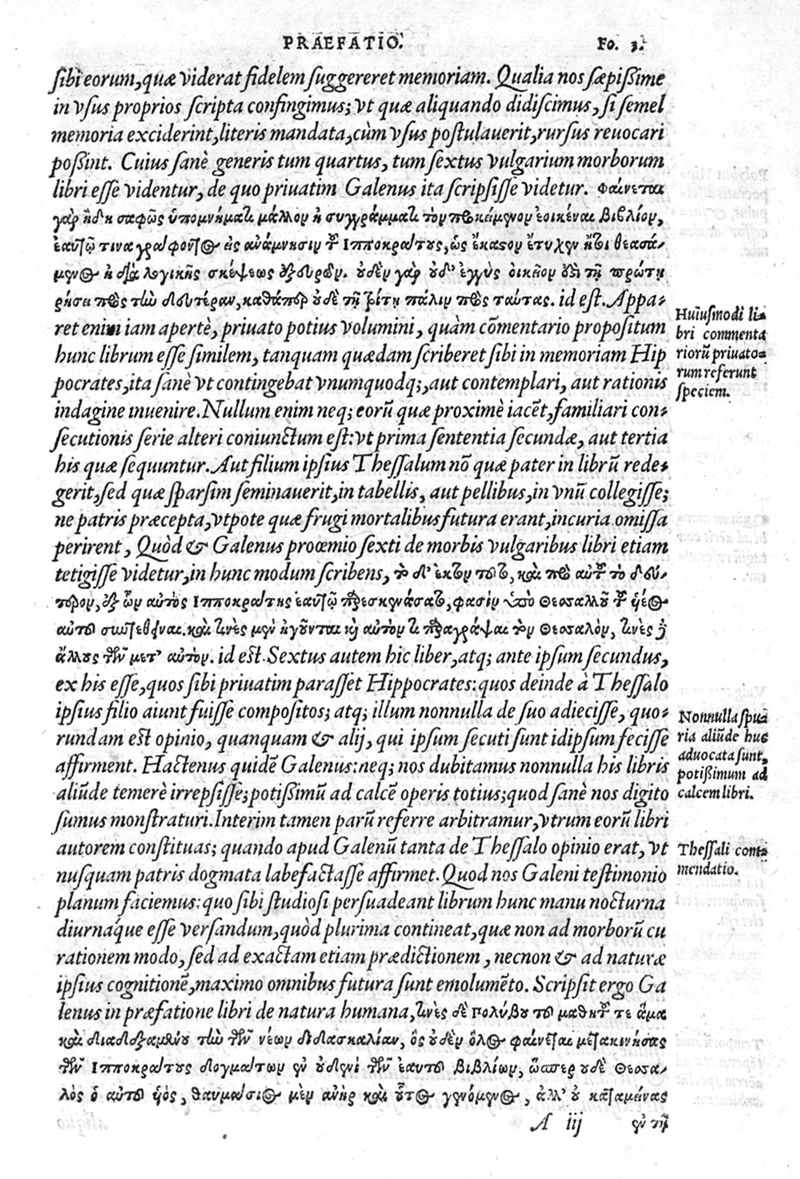 PRAEFATIO. Fo. 3.
sibi eorum, quæ viderat fidelem suggereret memoriam. Qualia nos sæpißime
in vsus proprios scripta confingimus; vt quæ aliquando didiscimus, si semel
memoria exciderint, literis mandata, cùm vsus postulauerit, rursus reuocari
poßint. Cuius sanè generis tum quartus, tum sextus vulgarium morborum
libri esse videntur, de quo priuatim Galenus ita scripsisse videtur. φαίνεται
γὰρ ἤδη σαφῶς ὑπομνήματι μᾶλλον ἢ συγγράμματι τὸ προκείμενον ἐοικέναι βιβλίον,
ἑαυτῷ τινα γράφοντος εἰς ἀνάμνησιν τοῦ Ἱπποκράτους, ὡς ἕκαστον ἔτυχεν ἤτοι θεασά-
μενος ἢ διὰ λογικῆς σκέψεως ἐξευρών. οὐδὲν γὰρ οὐδ' ἐγγὺς οἰκεῖον ἐστι τῇ πρώτῃ
ῥήσει πρὸς τὴν δευτέραν, καθάπερ οὐδὲ τῇ τρίτῃ πάλιν πρὸς ταύτας. id est. Appa-
ret enim iam apertè, priuato potius volumini, quàm cōmentario propositum
hunc librum esse similem, tanquam quædam scriberet sibi in memoriam Hip
pocrates, ita sanè vt contingebat vnumquodq;, aut contemplari, aut rationis
indagine inuenire. Nullum enim neq; eorū quæ proximè iacēt, familiari con-
secutionis serie alteri coniunctum est: vt prima sententia secundæ, aut tertia
his quæ sequuntur. Aut filium ipsius Thessalum nō quæ pater in librū rede-
gerit, sed quæ sparsim seminauerit, in tabellis, aut pellibus, in vnū collegisse;
ne patris præcepta, vtpote quæ frugi mortalibus futura erant, incuria omissa
perirent, Quòd & Galenus proœmio sexti de morbis vulgaribus libri etiam
tetigisse videtur, in hunc modum scribens, τὸ δ' ἕκτον τοῦτο, καὶ πρὸ αὐτοῦ τὸ δεύ-
τερον, ἐξ ὧν αὐτὸς Ἱπποκράτης ἑαυτῷ παρεσκευάσατο, φασὶν ὑπὸ Θεσσαλοῦ τοῦ υἱέος
αὐτοῦ συντεθῆναι. καὶ τινὲς μὲν ἡγοῦνται καὶ αὐτόν τι παραγράψαι τὸν Θεσσαλὸν, τινὲς δὲ
ἄλλους τῶν μετ' αὐτόν. id est. Sextus autem hic liber, atq; ante ipsum secundus,
ex his esse, quos sibi priuatim parasset Hippocrates: quos deinde à Thessalo
ipsius filio aiunt fuisse compositos; atq; illum nonnulla de suo adiecisse, quo-
rundam est opinio, quanquam & alij, qui ipsum secuti sunt idipsum fecisse
affirment. Hactenus quidē Galenus: neq; nos dubitamus nonnulla his libris
aliūde temerè irrepsisse; potißimū ad calcē operis totius; quod sanè nos digito
sumus monstraturi. Interim tamen parū referre arbitramur, vtrum eorū libri
autorem constituas; quando apud Galenū tanta de Thessalo opinio erat, vt
nusquam patris dogmata labefactasse affirmet. Quod nos Galeni testimonio
planum faciemus: quo sibi studiosi persuadeant librum hunc manu nocturna
diurnáque esse versandum, quòd plurima contineat, quæ non ad morborū cu
rationem modo, sed ad exactam etiam prædictionem, necnon & ad naturæ
ipsius cognitionē, maximo omnibus futura sunt emolumēto. Scripsit ergo Ga
lenus in præfatione libri de natura humana, τινὲς δὲ Πολύβου τοῦ μαθητοῦ τε ἅμα
καὶ διαδεξαμένου τὴν τῶν νέων διδασκαλίαν, ὃς οὐδὲν ὅλως φαίνεται μετακινήσας
τῶν Ἱπποκράτους δογμάτων ἐν οὐδενὶ τῶν ἑαυτοῦ βιβλίων, ὥσπερ οὐδὲ Θεσσα-
λὸς ὁ αὐτοῦ υἱός, θαυμάσιος μὲν ἀνὴρ καὶ οὗτος γενόμενος, ἀλλ' οὐ καταμείνας
A iij ἐν τῇ
Huiusmodi li-
bri commenta
riorū priuato-
rum referunt
speciem.
Nonnulla spu
ria aliūde huc
aduocata sunt,
potißimum ad
calcem libri.
Thessali com-
mendatio.